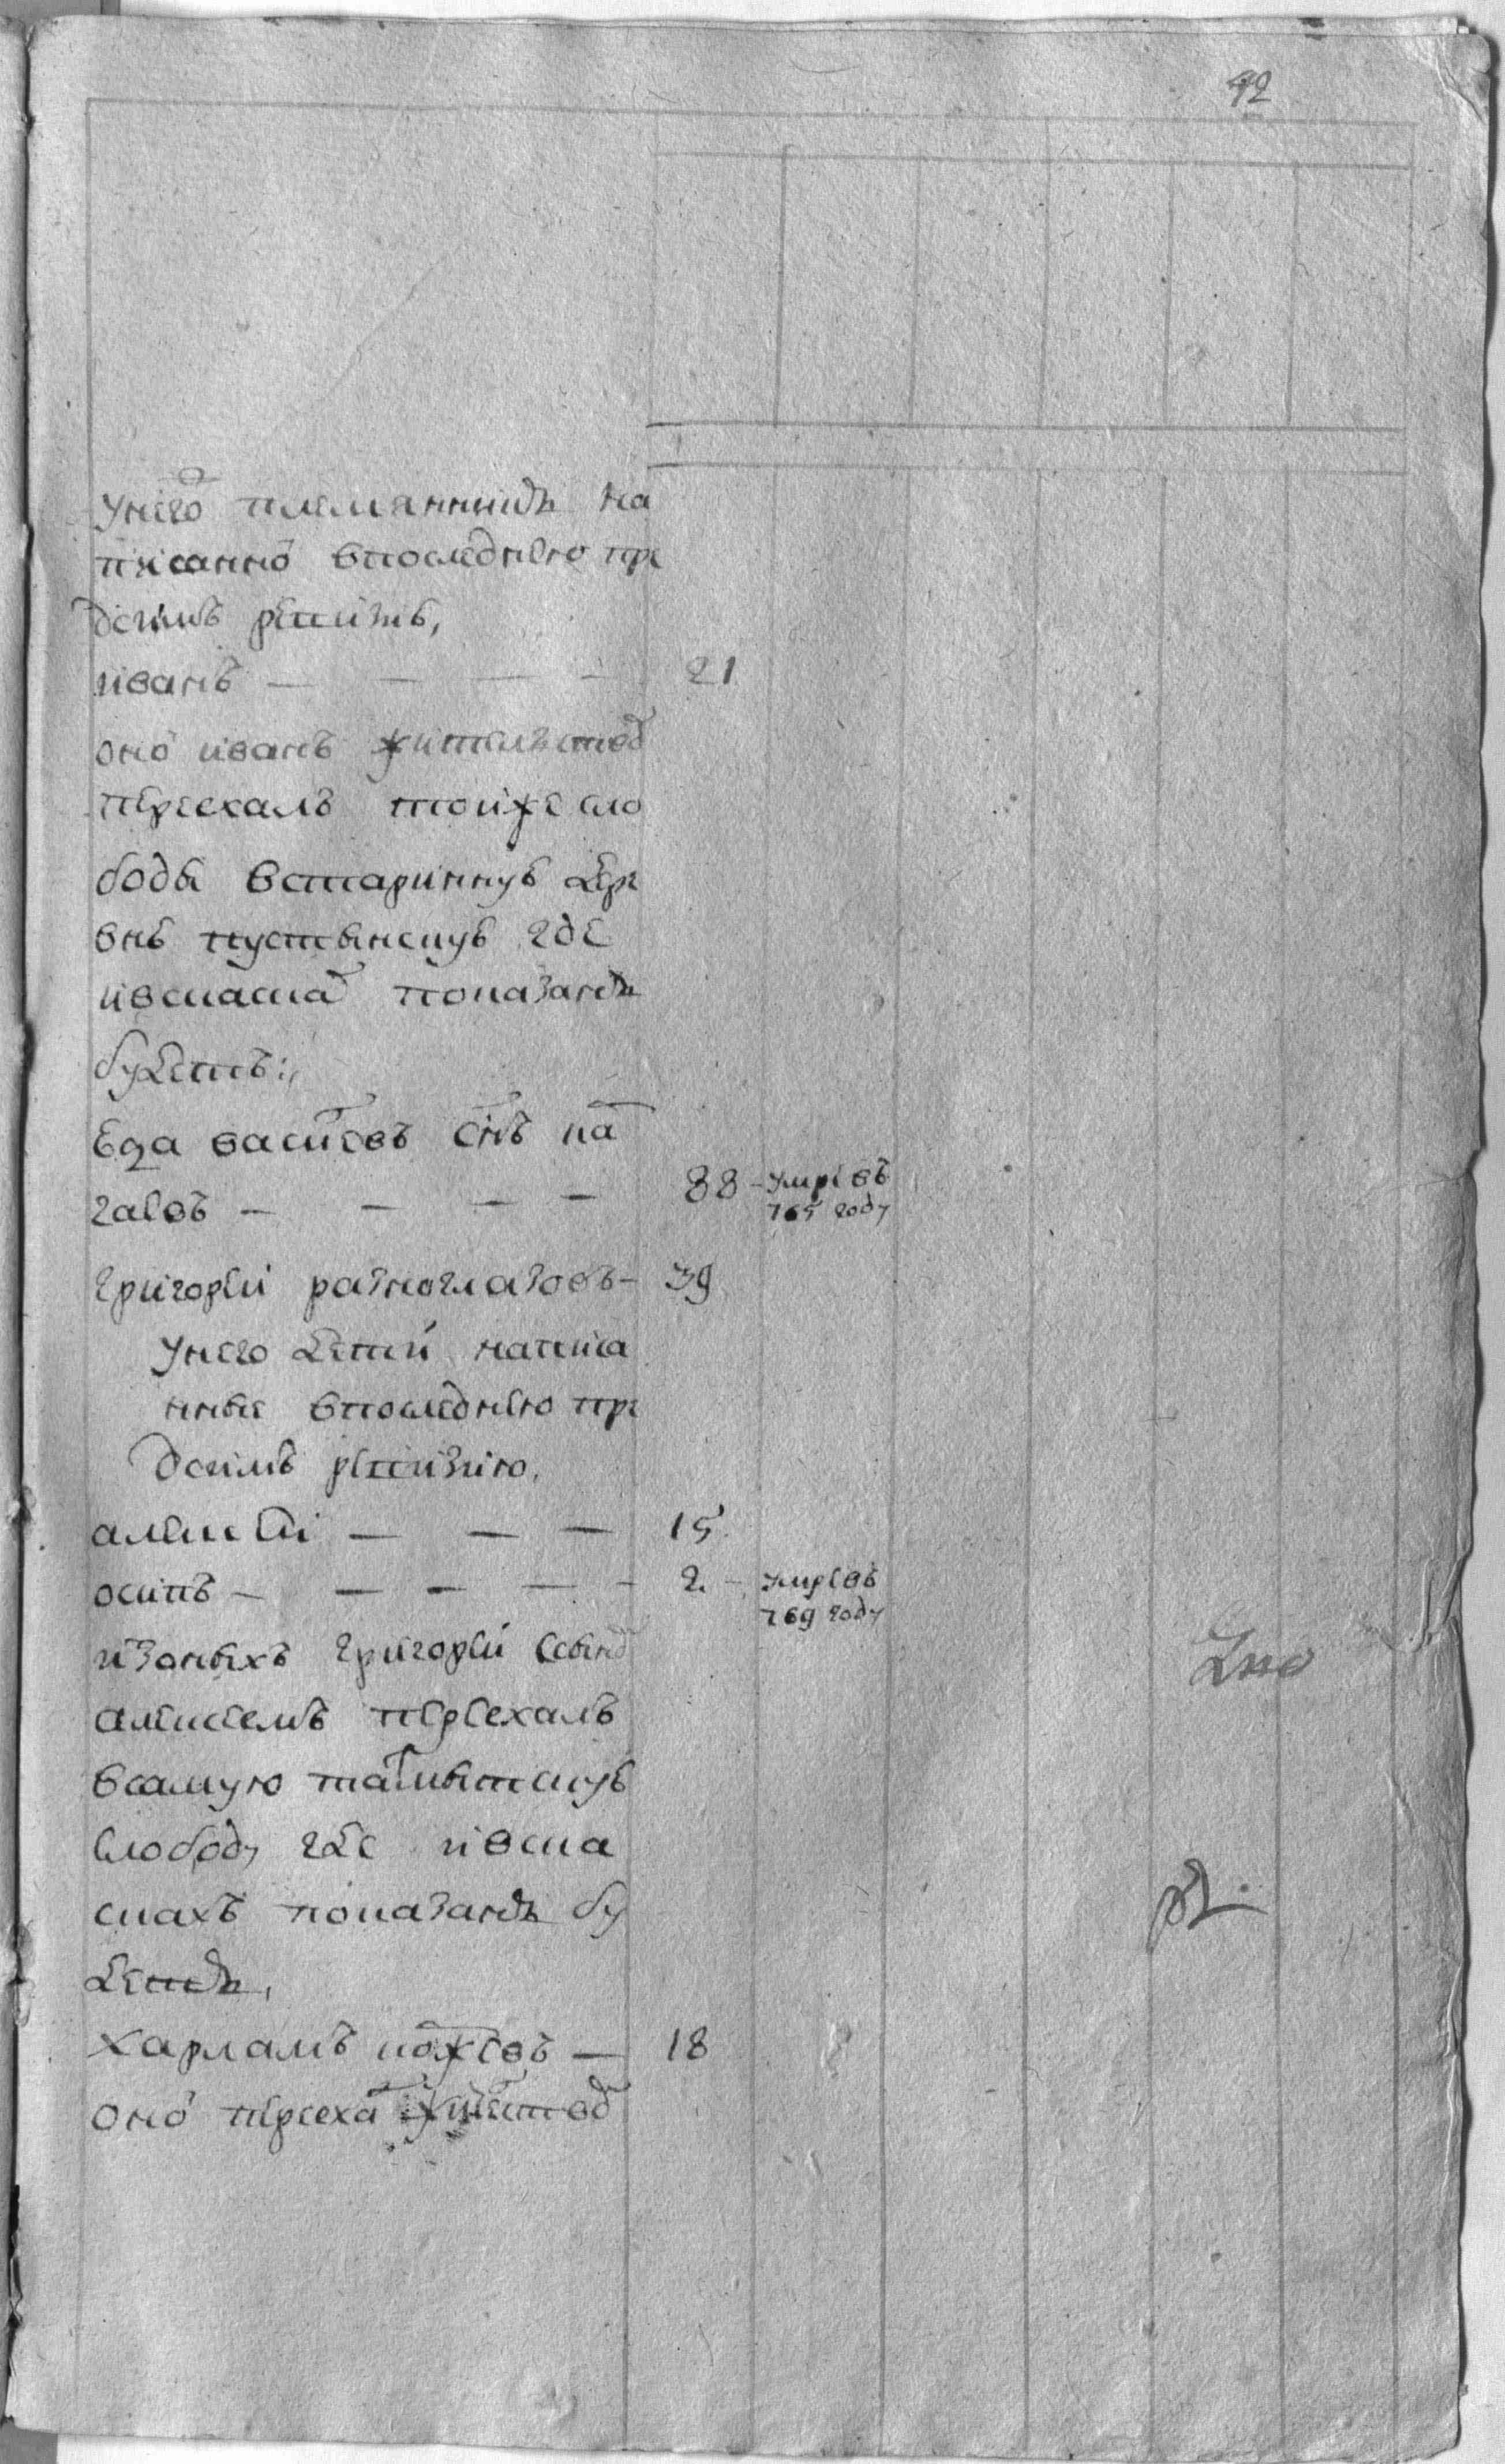 42
унего племянникъ на
писанно впоследнею пре
дсимъ ревизию,
иванъ — — — — 21
оной иванъ жителствод
переехалъ тойже сло
боды встаринную дере
вню пустынскую где
ивсказкахъ показанъ
будетъ:,
Егоръ сынъ ка
гаевъ — — — — 38 — умре въ
765 году
григорей разноглазовъ — 39
унего детей написа
нные впоследнею пре
дсимъ ревизию.
алексей — — — 15
осипъ — — — — 2. — умре въ
769 году
изоныхъ григорей ссыномъ
алексеемъ переехалъ
всамую такмытскую
слободу где ивска
скахъ показанъ бу
детъ,
харламъ кожевъ — 18
оной переехалъ жителствод